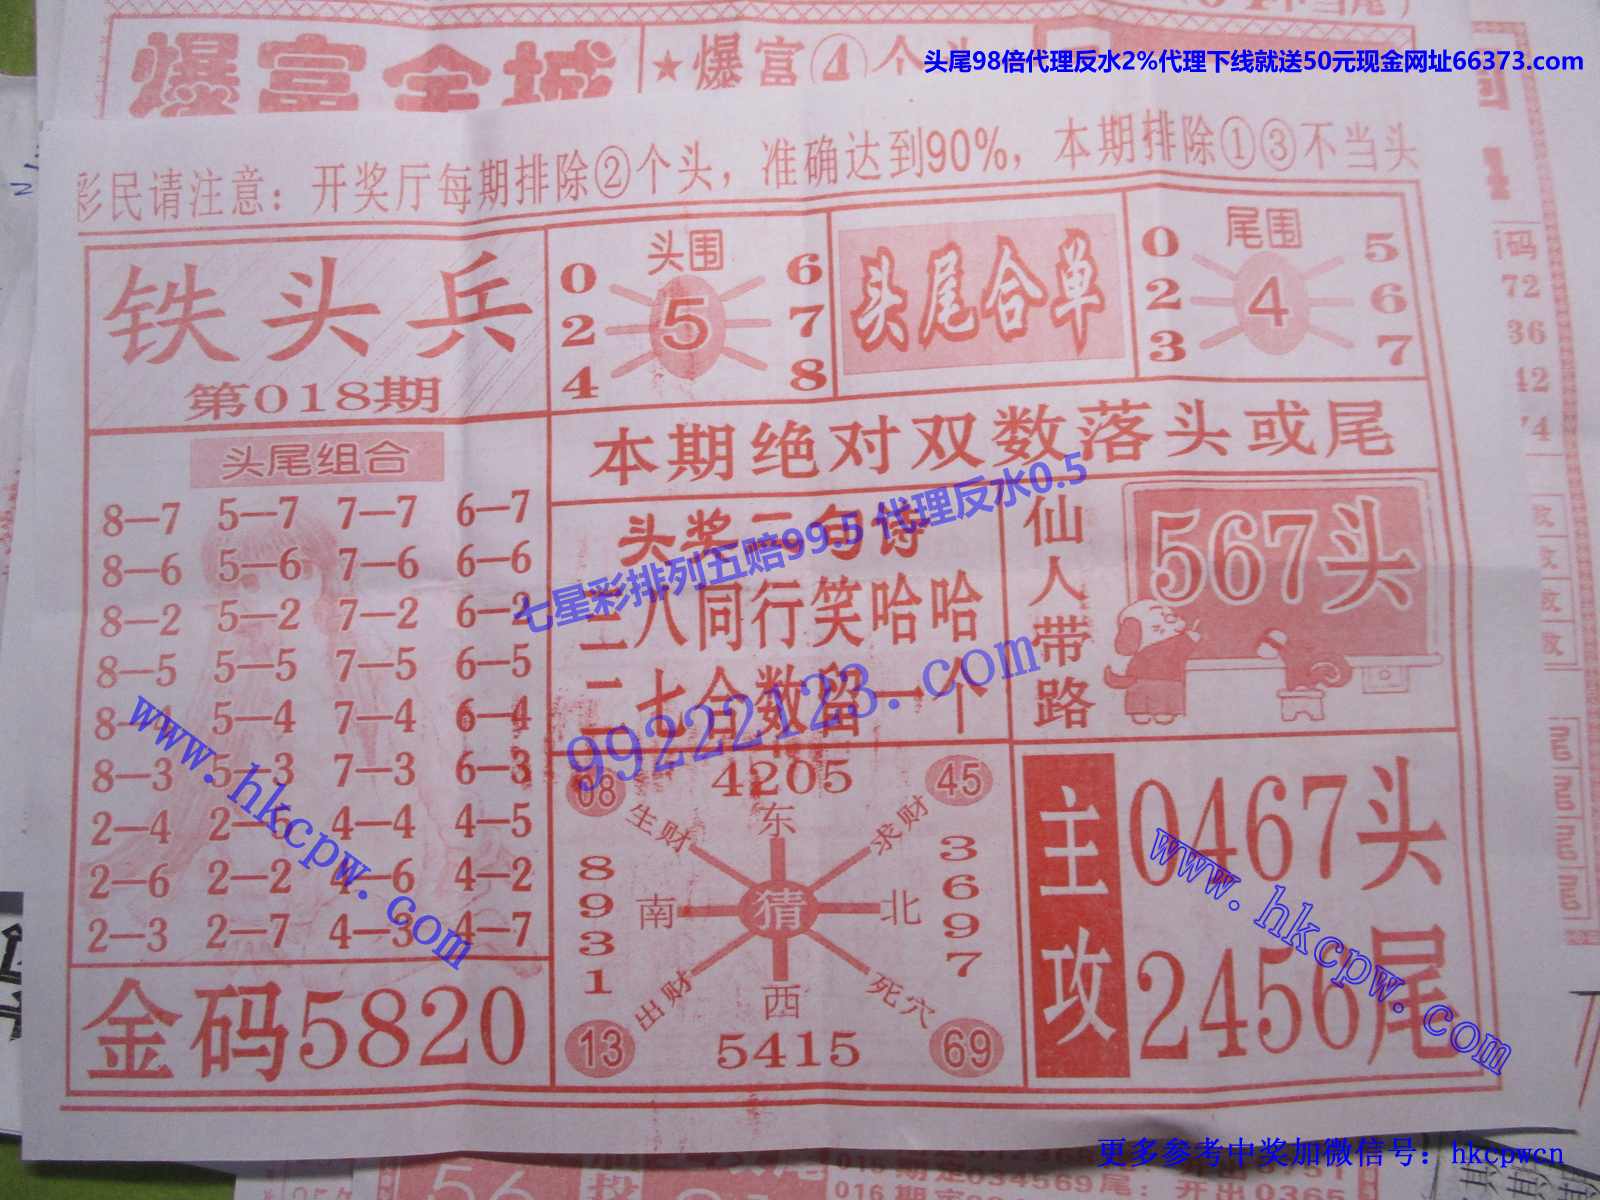 头尾98倍代理反水2%代理下线就送50元现金网址66373.com
爆富全城
★爆富④个头
彩民请注意：开奖厅每期排除②个头，准确达到90%，本期排除①③不当头
铁头兵
第018期
头围
0 6
2 5 7
4 8
头尾合单
尾围
0 5
2 4 6
3 7
本期绝对双数落头或尾
头尾组合
8—7 5—7 7—7 6—7
8—6 5—6 7—6 6—6
8—2 5—2 7—2 6—2
8—5 5—5 7—5 6—5
8—4 5—4 7—4 6—4
8—3 5—3 7—3 6—3
2—4 2—6 4—4 4—5
2—6 2—2 4—6 4—2
2—3 2—7 4—3 4—7
金码5820
头奖二句诗
三八同行笑哈哈
二七合数留一个
七星彩排列五赔99.5 代理反水0.5
99222123.com
仙人带路
567头
08 4205 45
生财 东 求财
8931 南 猜 北 3697
出财 西 死穴
13 5415 69
主攻
0467头
2456尾
www.hkcpw.com
www.hkcpw.com
码
72
36
42
74
更多参考中奖加微信号：hkcpwcn